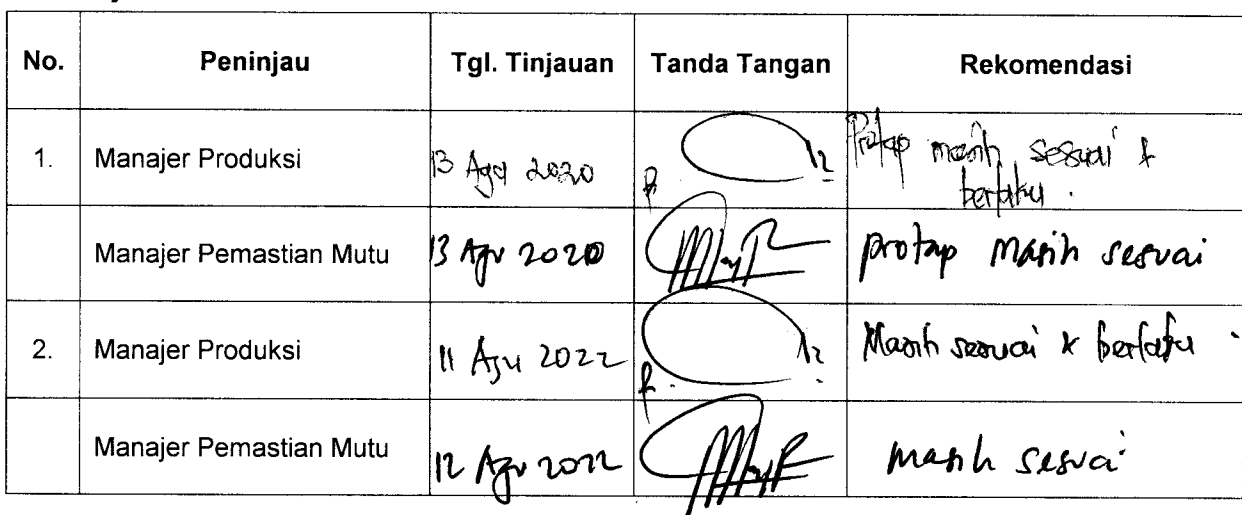 No. Peninjau Tgl. Tinjauan Tanda Tangan Rekomendasi
1. Manajer Produksi 13 Agu 2020 Protap masih sesuai &
berlaku.
Manajer Pemastian Mutu 13 Agu 2020 protap masih sesuai
2. Manajer Produksi 11 Agu 2022 Masih sesuai & berlaku.
Manajer Pemastian Mutu 12 Agu 2022 masih sesuai